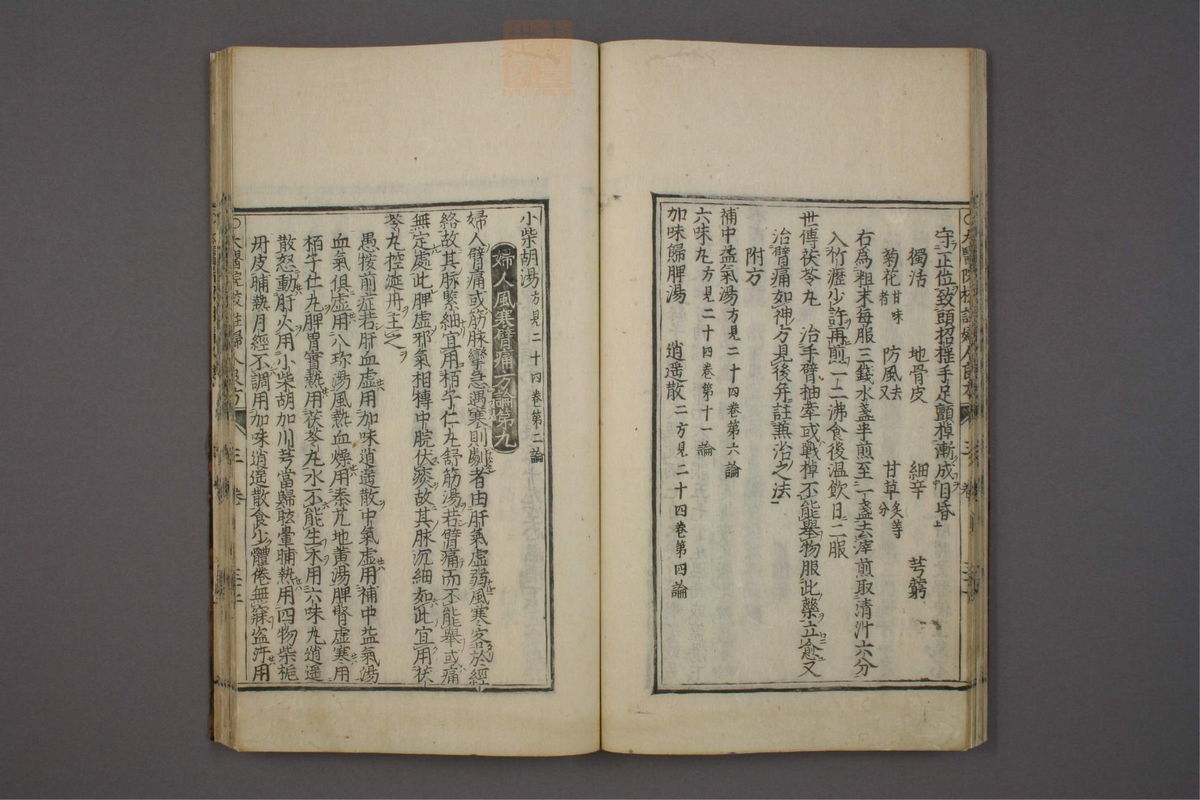 守正位致頭招搖手足顫掉漸成目昏
獨活 地骨皮 細辛 芎藭
菊花甘味者 防風去叉 甘草炙等分
右爲粗末每服三錢水盞半煎至一盞去滓煎取清汁六分
入竹瀝少許再煎一二沸食後溫飲日二服
世傳茯苓丸 治手臂抽牽或戰掉不能舉物服此藥立愈又
治臂痛如神方見後幷註蕪治之法
附方
補中益氣湯方見二十四卷第六論
六味丸方見二十四卷第十一論
加味歸脾湯 逍遥散二方見二十四卷第四論
小柴胡湯方見二十四卷第二論
婦人風寒臂痛方論第九
婦人臂痛或筋脉攣急遇寒則劇者由肝氣虛弱風寒客於經
絡故其脉緊細宜用栢子仁丸舒筋湯若臂痛而不能舉或痛
無定處此脾虛邪氣相摶中脘伏痰故其脉沉細如此宜用茯
苓丸控涎丹主之
愚按前症若肝血虛用加味逍遥散中氣虛用補中益氣湯
血氣俱虛用八珎湯風熱血燥用秦艽地黄湯脾腎虛寒用
栢子仁丸脾胃實熱用茯苓丸水不能生木用六味丸逍遥
散怒動肝火用小柴胡加川芎當歸眩暈晡熱用四物柴栀
丹皮晡熱月經不調用加味逍遥散食少體倦無寐盗汗用
〇太醫院校註婦人良方 三卷